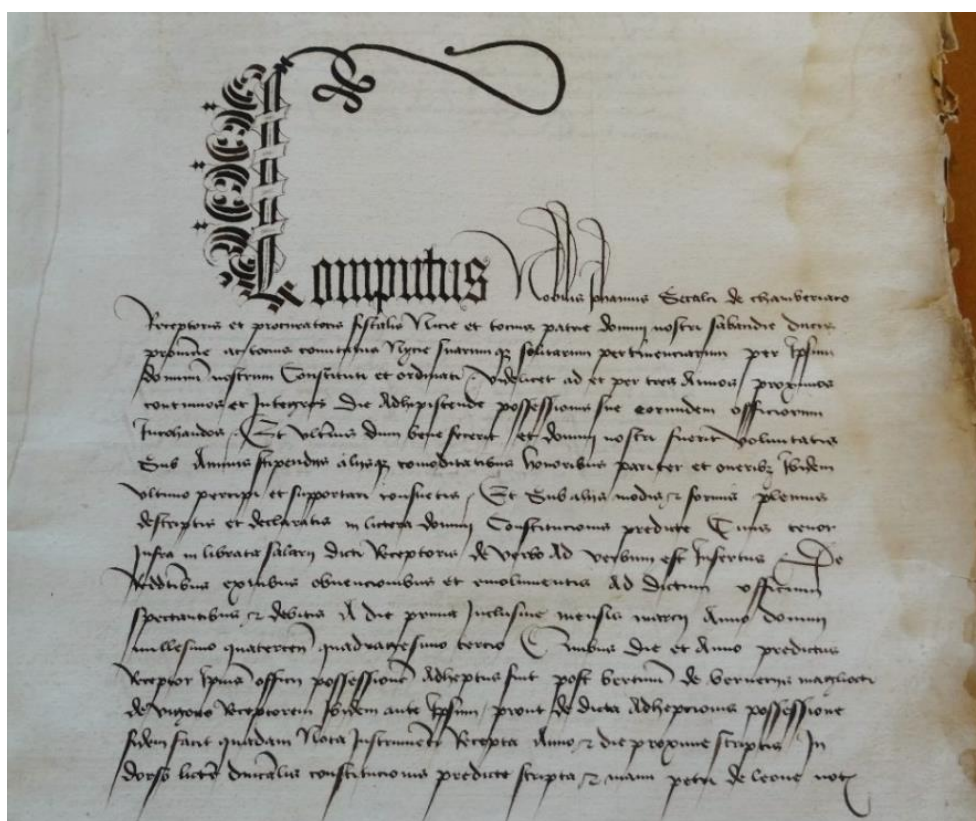 Computus Nobilis Johannis de chamberiaco
Receptoris et procuratoris fiscalis Nicie et tocius patrie domini nostri sabaudie ducis
provincie ac tocius comitatus Nycie suarumque solitarum pertinenciarum per Ipsum
dominum nostrum Constituti et ordinati videlicet ad et per tres Annos proximos
continuos et Integros die Adhepiscende possessionis sue eorundem officiorum
Inchohandos Et ulterius dum bene fecerit et domini nostri fuerit voluntatis
Sub Annuis stipendiis aliisque comoditatibus honoribus pariter et oneribus Ibidem
ultimo percipi et supportari consuetis Et Sub aliis modis et formis plenius
descriptis et declaratis in lictera domini Constitucionis predicte Cuius tenor
Infra in librata salarii dicti Receptoris de verbo Ad verbum est Insertus De
Redditibus exitibus obvencionibus et emolumentis Ad dictum officium
spectantibus et debitis A die prima Inclusive mensis marcii Anno domini
millesimo quatercenti quadragesimo tercio Quibus die et Anno predictus
Receptor Ipsius officii possessionem Adheptus fuit post de
de Receptorem Ibidem ante Ipsum prout de dicta Adhepcionis possessione
fidem facit quadam Nota Instrumenti Recepta Anno et die proxime scriptis In
dorso lictere ducalis constitucionis predicte scripta et manu petri de leone not